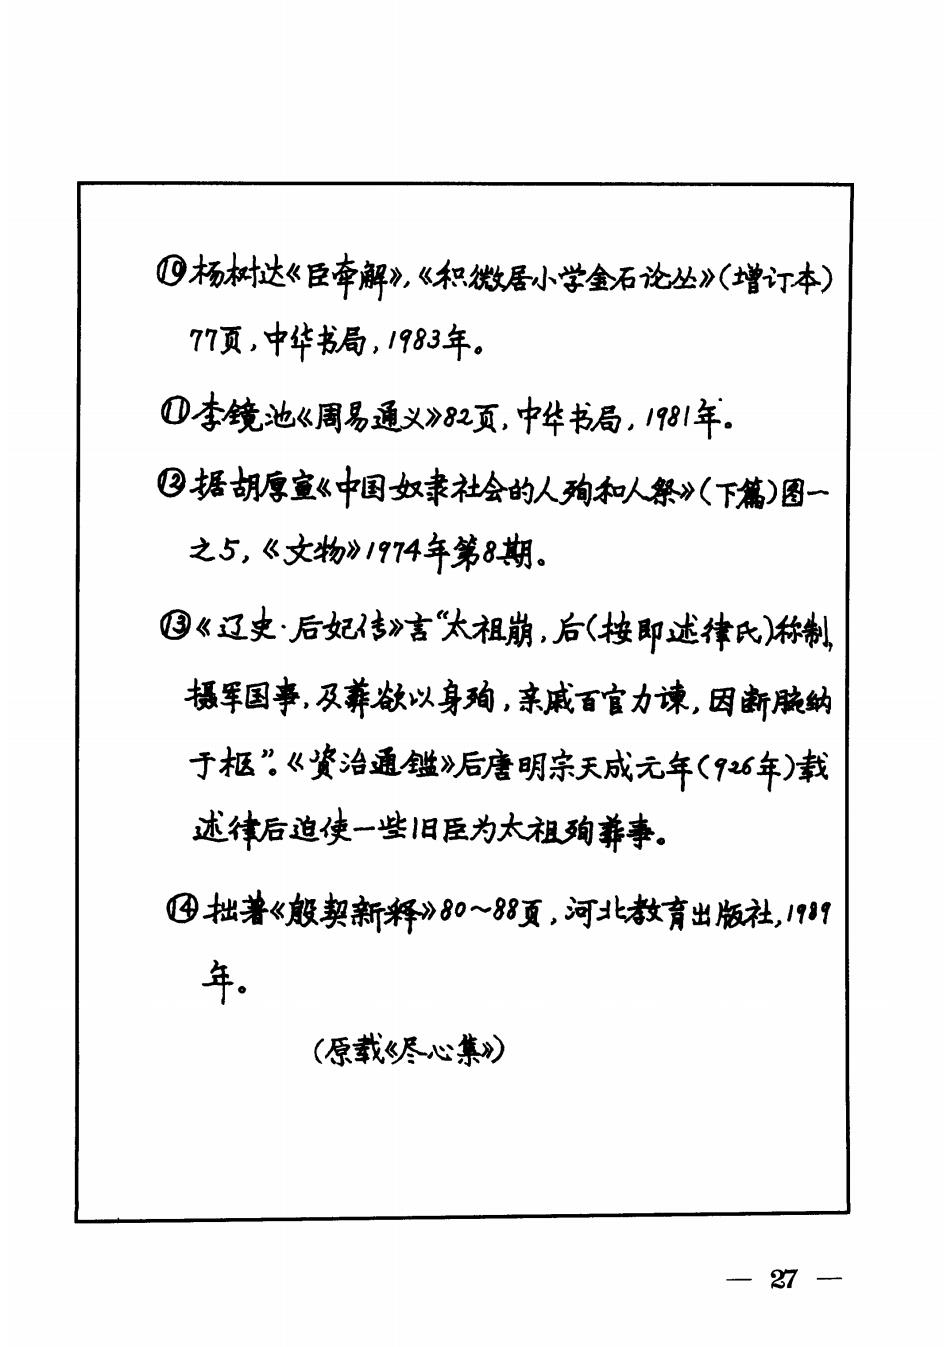 ⑩杨树达《臣牵解》,《积微居小学金石论丛》(增订本)
77页,中华书局,1983年。
⑪李镜池《周易通义》82页,中华书局,1981年。
⑫据胡厚宣《中国奴隶社会的人殉和人祭》(下篇)图一
之5,《文物》1974年第8期。
⑬《辽史·后妃传》言“太祖崩,后(按即述律氏)称制,
摄军国事,及葬欲以身殉,亲戚百官力谏,因断腕纳
于柩”。《资治通鑑》后唐明宗天成元年(926年)载
述律后迫使一些旧臣为太祖殉葬事。
⑭拙著《殷契新释》80~88页,河北教育出版社,1989
年。
(原载《尽心集》)
— 27 —